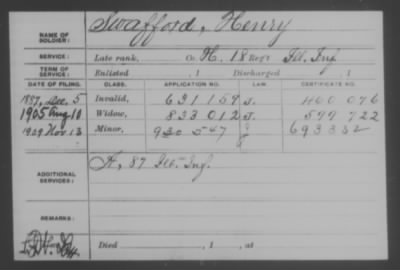 NAME OF SOLDIER: Swafford, Henry
SERVICE: Late rank, Co. H, 18 Reg't Ill. Inf.
TERM OF SERVICE: Enlisted , 1 Discharged , 1
DATE OF FILING. CLASS. APPLICATION NO. LAW. CERTIFICATE NO.
1887, Dec. 5 Invalid, 631159 J. 460 076
1905 Aug 10 Widow, 833 012 J. 599 722
1909 Nov. 13 Minor, 930 547 693332
ADDITIONAL SERVICES: H, 87 Ill. Inf.
REMARKS:
Died , 1 , at